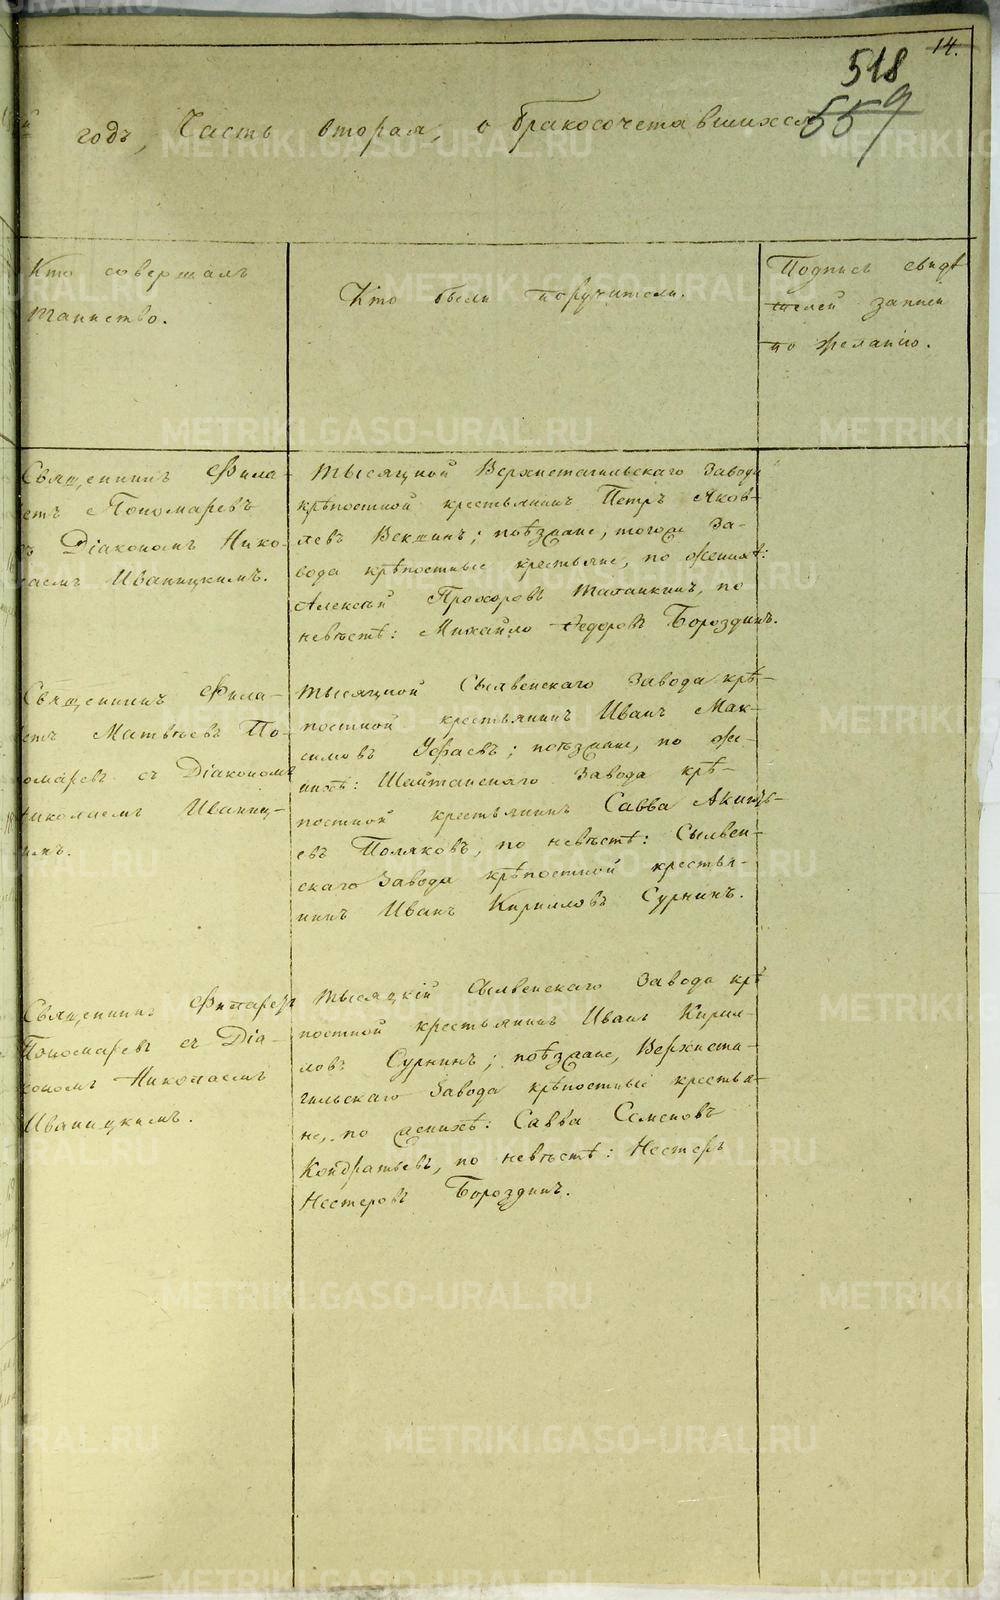 14.
518
559
годъ, Часть вторая, о бракосочетавшихся
Кто совершалъ
таинство.
Кто были поручители.
Подпись свидѣ
телей записи
по желанію.
Священникъ Фила-
етъ Пономаревъ
ъ Діакономъ Нико-
лаемъ Иваницкимъ.
Тысяцкой Верхнетагильскаго завода
крѣпостной крестьянинъ Петръ Яков-
левъ Векшинъ; поѣзжане, тогоже за-
вода крѣпостные крестьяне, по женихѣ:
Алексѣй Прохоровъ Таланкинъ, по
невѣстѣ: Михайло Федоровъ Бороздинъ.
Священникъ Фила-
етъ Матвѣевъ По-
номаревъ съ Діакономъ
Николаемъ Иваниц-
кимъ.
Тысяцкой Сылвенскаго завода крѣ-
постной крестьянинъ Иванъ Мак-
симовъ Уфаевъ; поѣзжане, по же-
нихѣ: Шайтанскаго завода крѣ-
постной крестьянинъ Савва Акинѳь-
евъ Поляковъ, по невѣстѣ: Сылвен-
скаго завода крѣпостной крестья-
нинъ Иванъ Кирилловъ Сурнинъ.
Священникъ Филаретъ
Пономаревъ съ Діа-
кономъ Николаемъ
Иваницкимъ.
Тысяцкій Сылвенскаго завода крѣ
постной крестьянинъ Иванъ Кирил-
ловъ Сурнинъ; поѣзжане, Верхнета-
гильскаго завода крѣпостные крестья-
не, по женихѣ: Савва Семеновъ
Кондратьевъ, по невѣстѣ: Нестеръ
Нестеровъ Бороздинъ.
METRIKI.GASO-URAL.RU